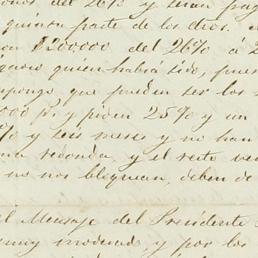 del 26% y
quinta parte de los dros.
$200000 del 26% á 2
quien habrá sido, pues
pongo que pueden ser los
000 ps. y piden 25% y un
% y seis meses y no han
redonda, y el resto
no nos bloquean, deben de
el Mensage del Presidente
muy moderado, y por los